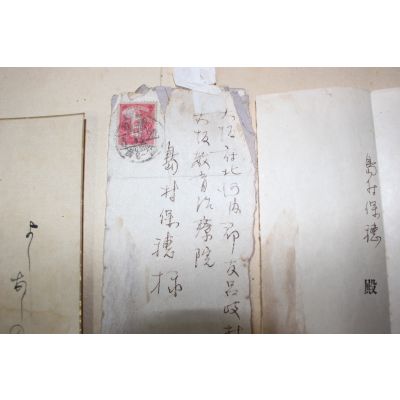 島村保穂 殿
大阪府北河内郡友呂岐村
大阪教育治療院
島村保穂様